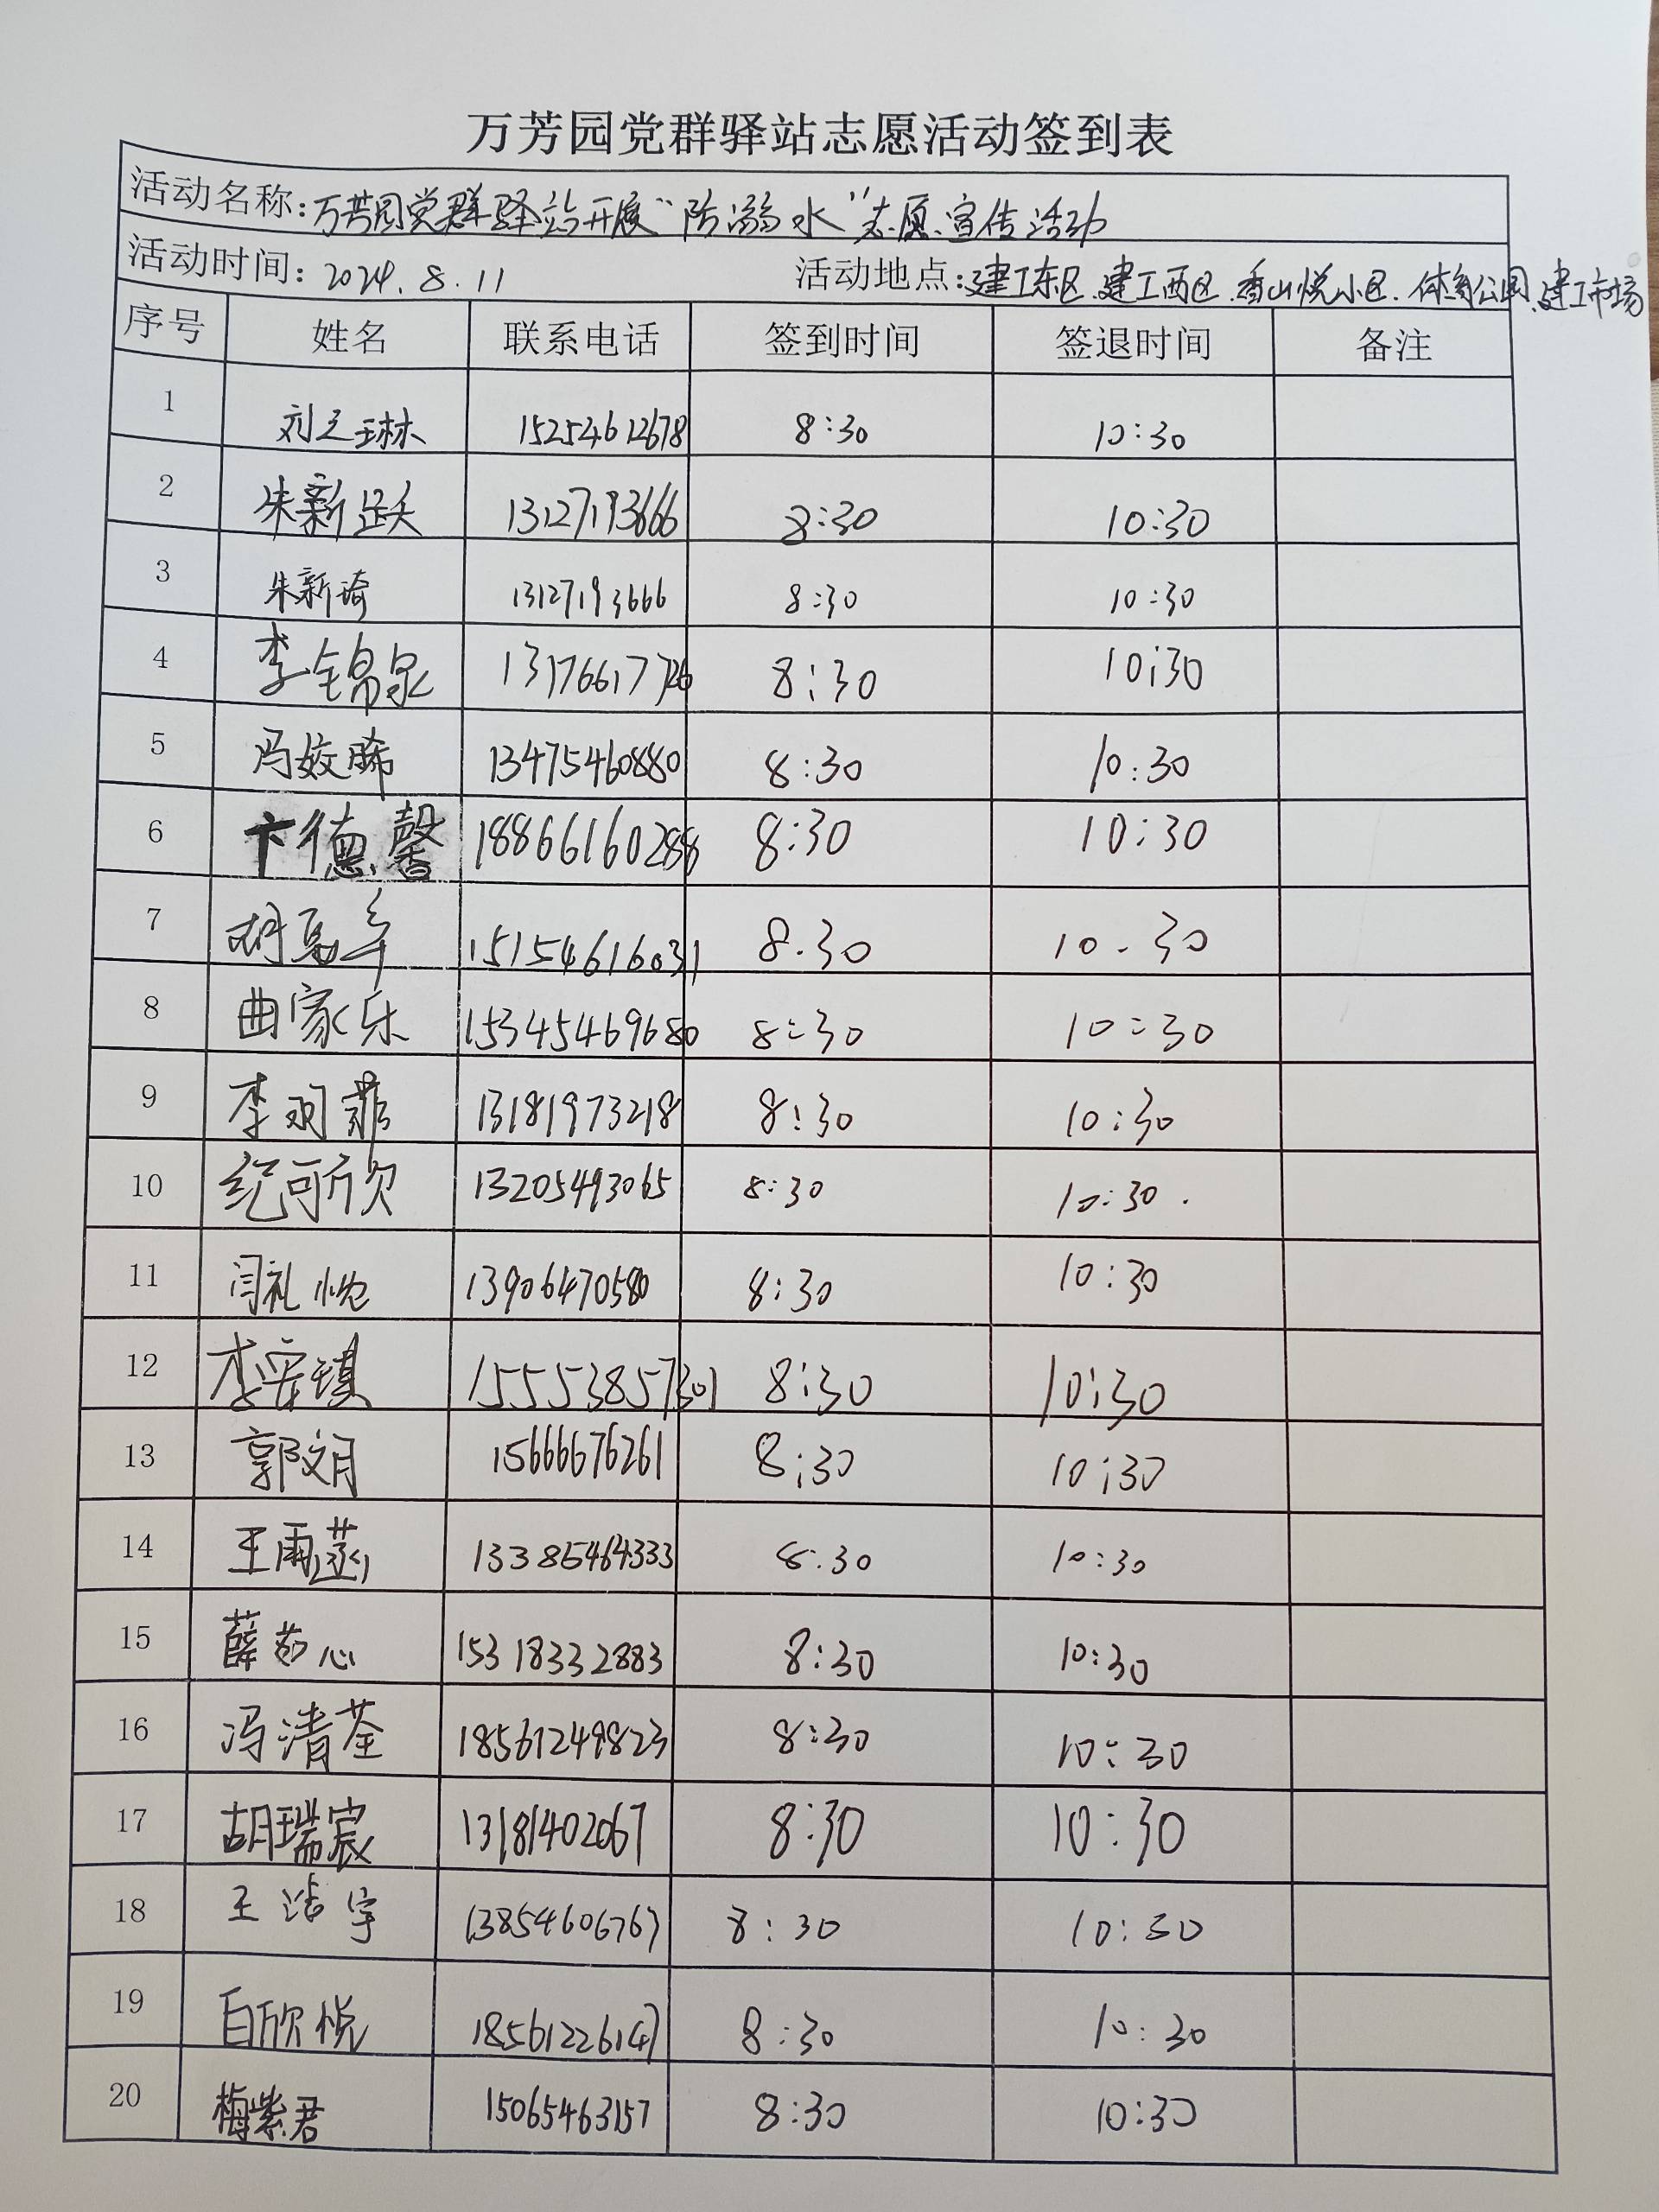 万芳园党群驿站志愿活动签到表
活动名称:万芳园党群驿站开展“防溺水”志愿宣传活动
活动时间: 2024.8.11 活动地点:建工东区.建工西区.香山悦小区.体育公园.建工市场
序号 姓名 联系电话 签到时间 签退时间 备注
1 刘芝琳 15254612678 8:30 10:30
2 朱新跃 13127193666 8:30 10:30
3 朱新琦 13127193666 8:30 10:30
4 李锦泉 13176617726 8:30 10:30
5 冯姣晞 13475460880 8:30 10:30
6 卞德馨 18866160288 8:30 10:30
7 15154616031 8.30 10.30
8 曲家乐 15345469680 8:30 10:30
9 李羽菲 13181973218 8:30 10:30
10 纪可欣 13205493065 8:30 10:30.
11 闫礼悦 13906470580 8:30 10:30
12 李安琪 15553857301 8:30 10:30
13 郭文月 15666676261 8:30 10:30
14 王雨菡 13385464333 8:30 10:30
15 薛茹心 15318332883 8:30 10:30
16 冯清荃 18561249823 8:30 10:30
17 胡瑞宸 13181402067 8:30 10:30
18 王浩宇 13854606767 8:30 10:30
19 白欣悦 18561226147 8:30 10:30
20 梅紫君 15065463157 8:30 10:30